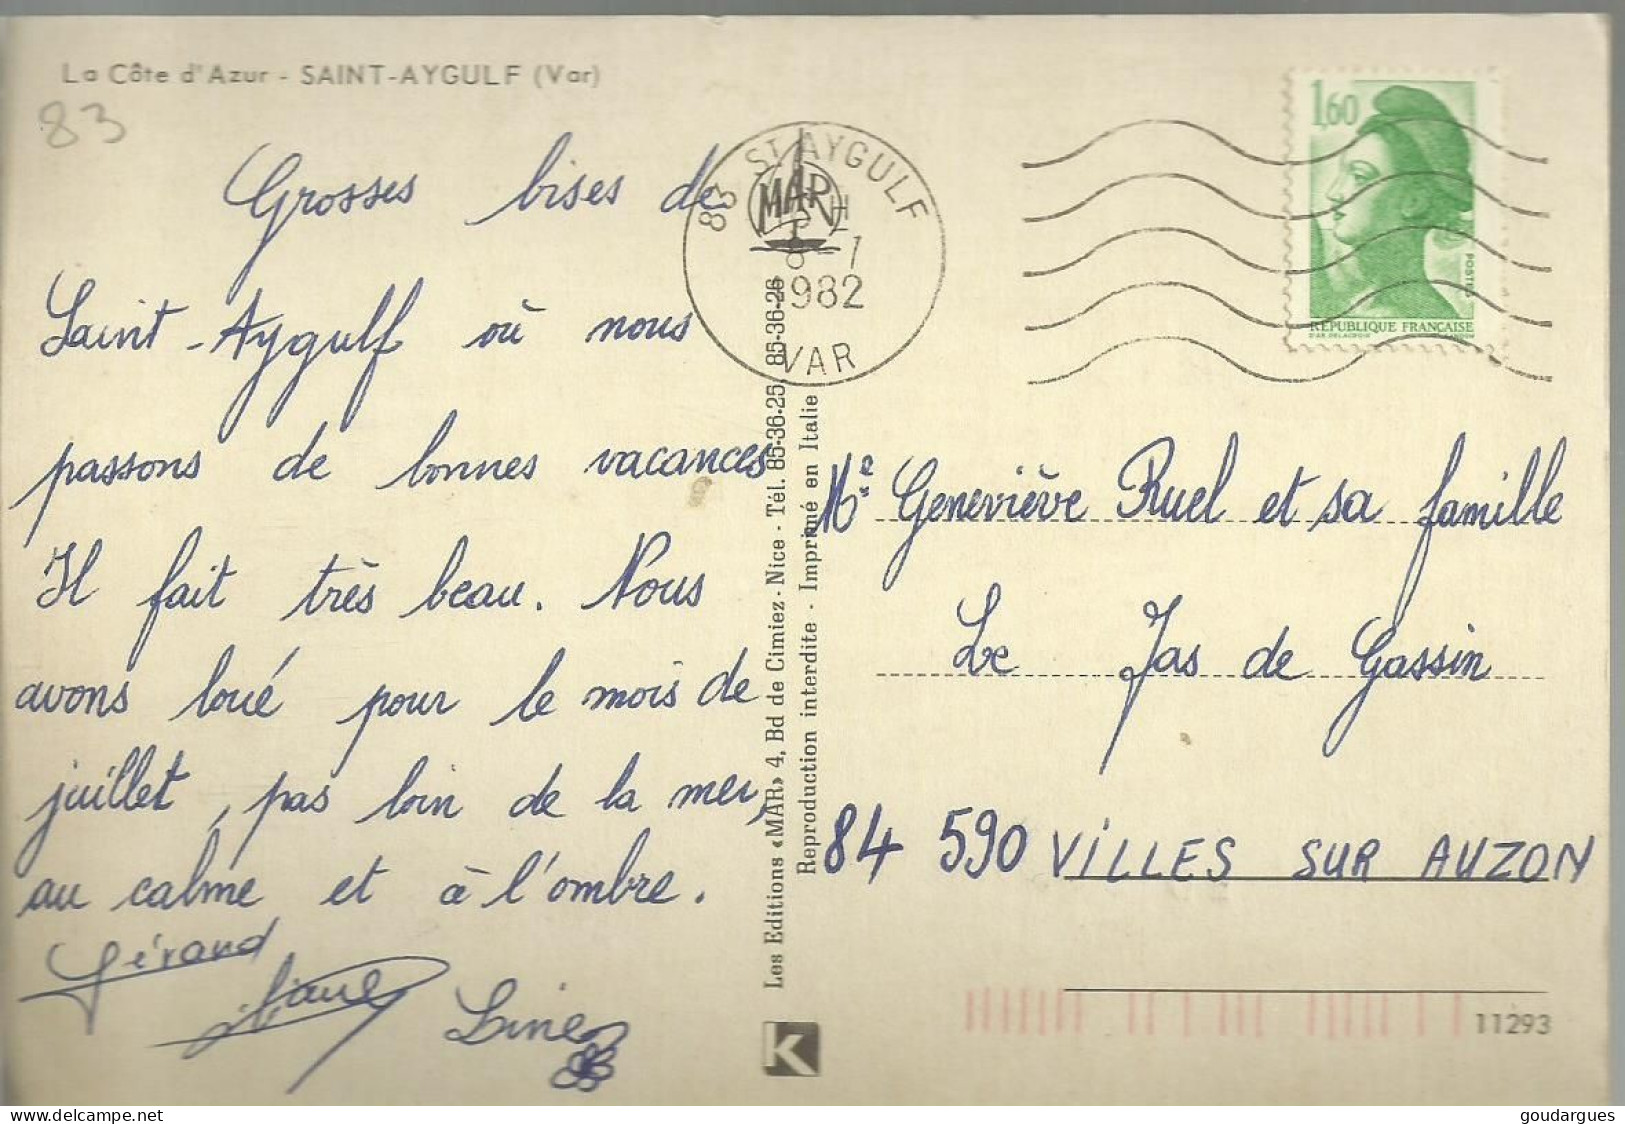 La Côte d'Azur - SAINT-AYGULF (Var)
83
Grosses bises de
Saint-Aygulf où nous
passons de bonnes vacances
Il fait très beau. Nous
avons loué pour le mois de
juillet, pas loin de la mer,
au calme et à l'ombre.
Gérard
Line
Les Editions «MAR» 4, Bd de Cimiez - Nice - Tél. 85-36-25, 85-36-26
Reproduction interdite - Imprimé en Italie
MAR
K
83 ST AYGULF
H
8 -7
1982
VAR
1,60
POSTES
RÉPUBLIQUE FRANÇAISE
D'AP. DELACROIX
Me Geneviève Ruel et sa famille
Le Jas de Gassin
84 590 VILLES SUR AUZON
11293
goudargues
www.delcampe.net